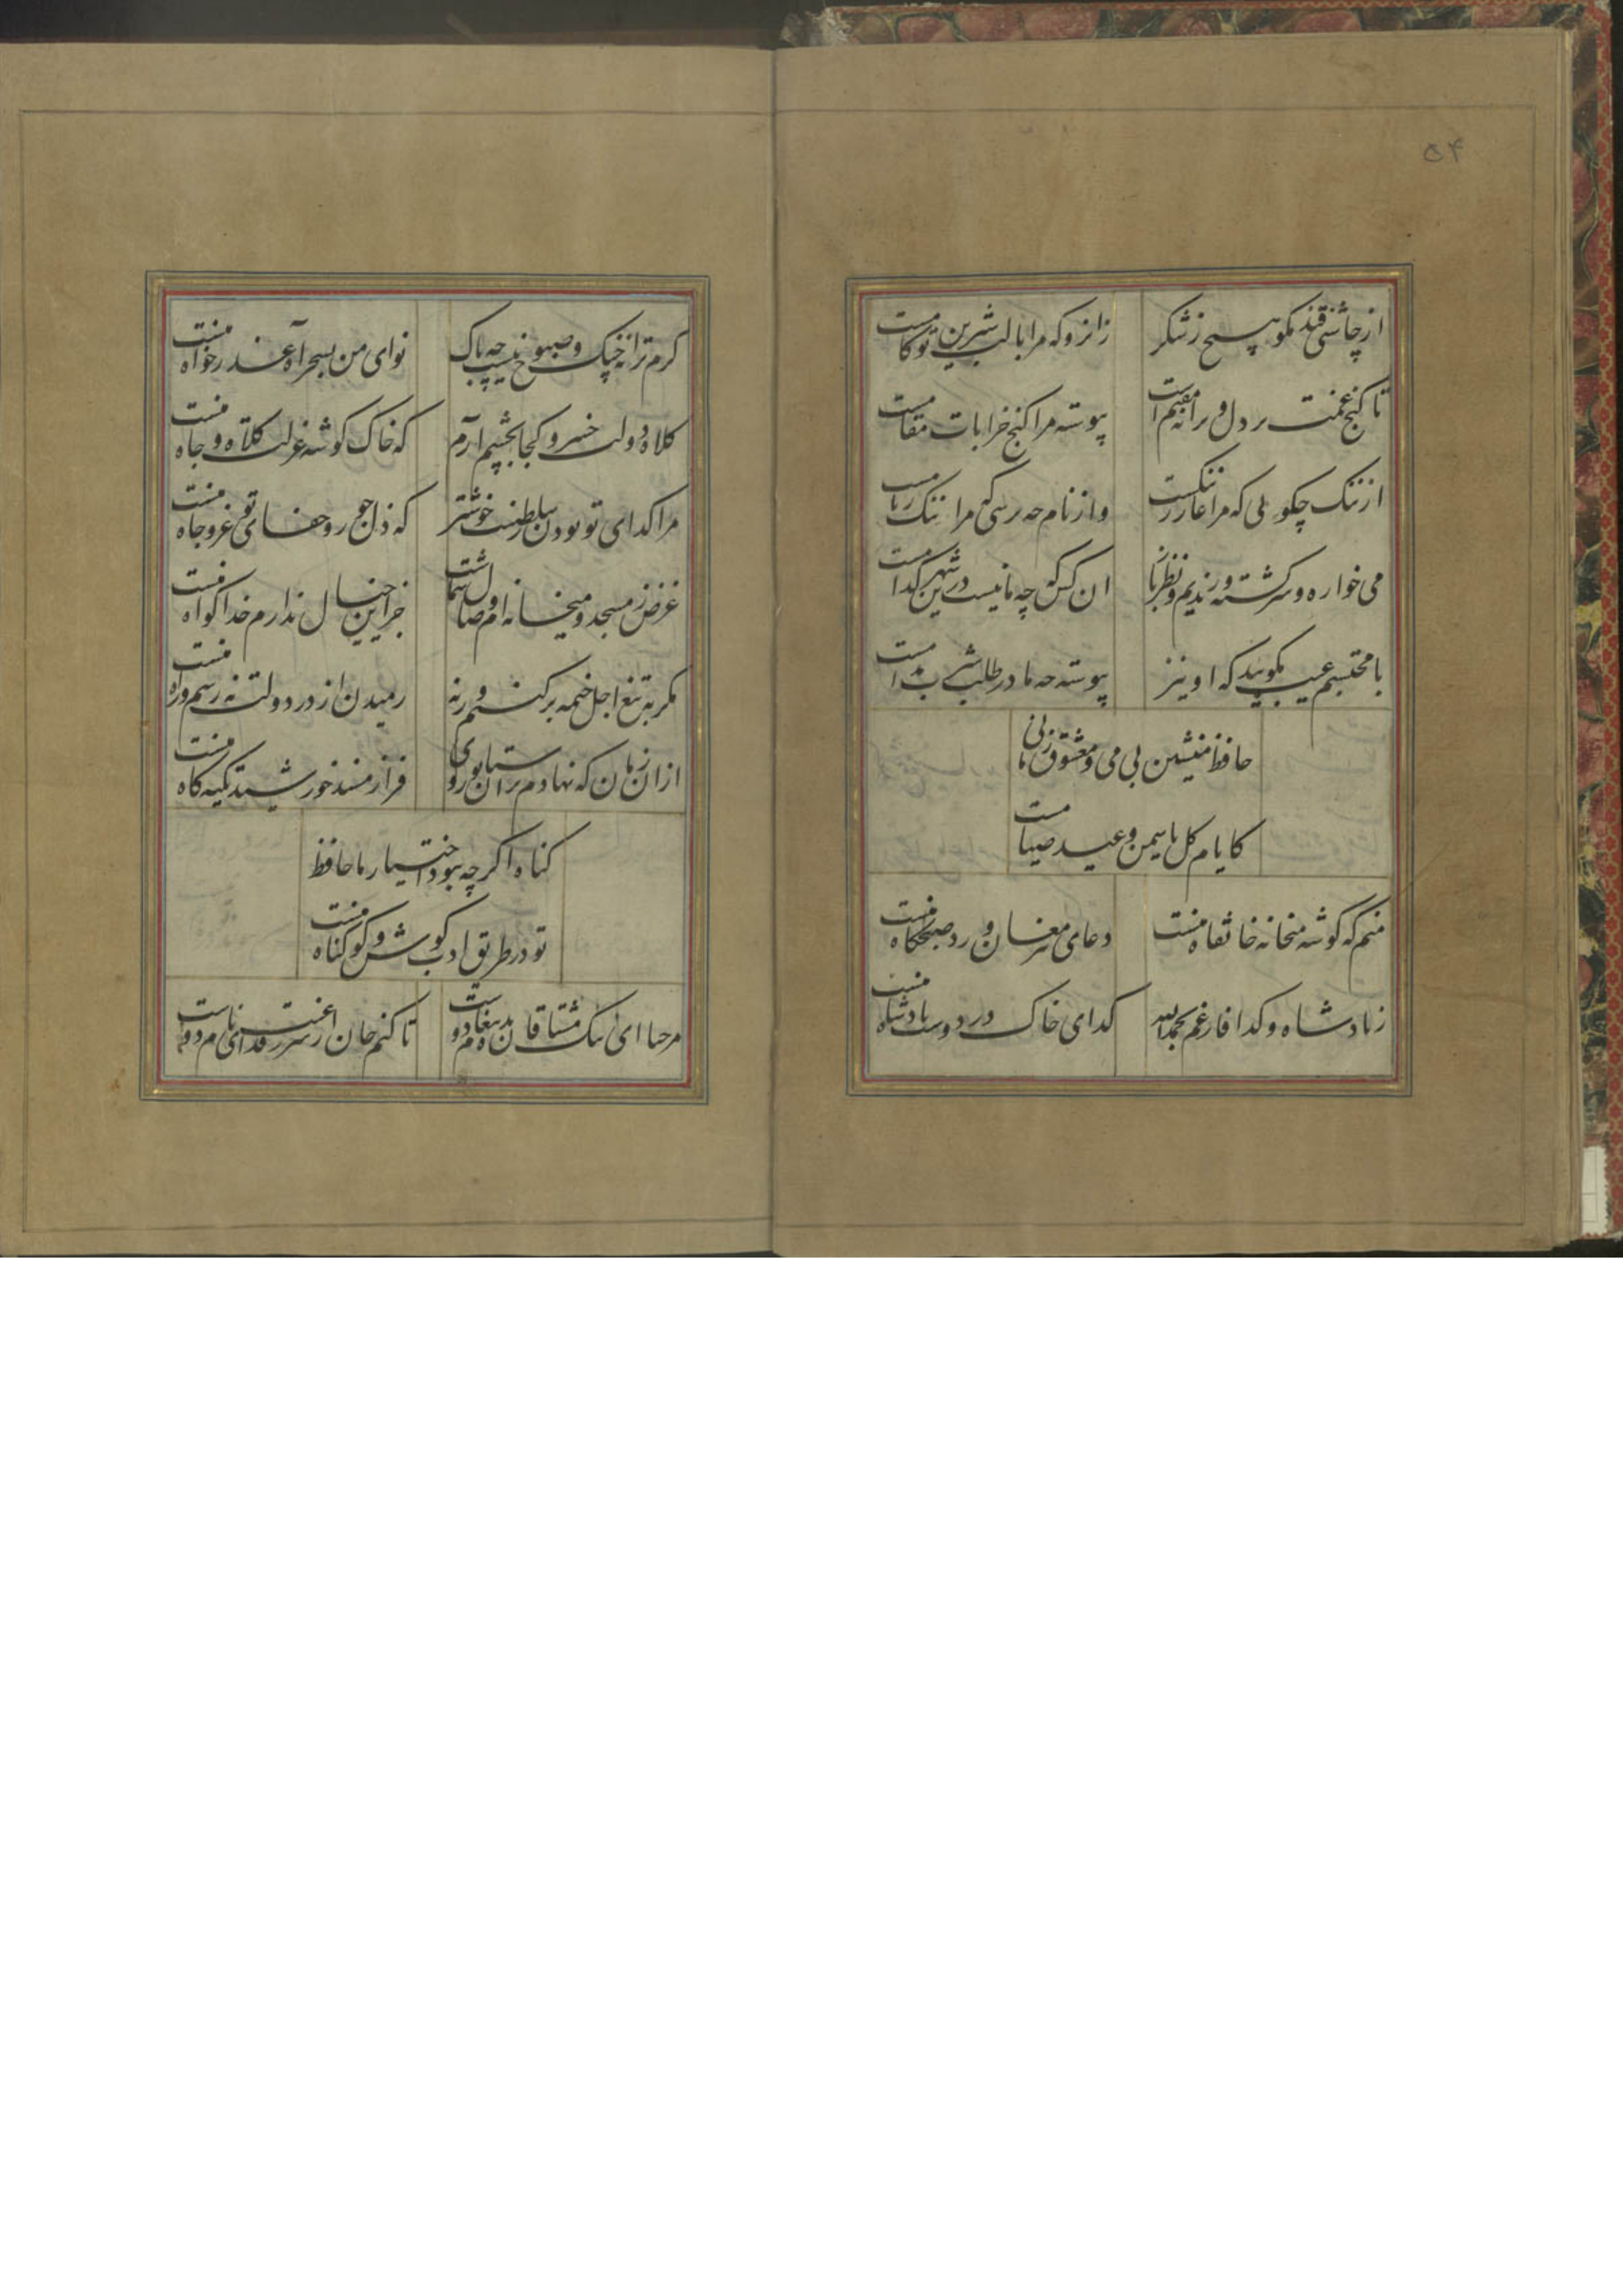 ۵۴
از چاشنی قند مکو هیچ ز شکر
زانرو که مرا با لب شیرین تو کامست
تا کنج غمت در دل ویرانه مقیم است
پیوسته مرا کنج خرابات مقامست
از ننک چکویی که مرا عار ز ننکست
واز نام چه پرسی که مرا ننک ز نامست
می خواره و سرکشته و رندیم و نظرباز
ان کس که چو ما نیست درین شهر کدامست
با محتسبم عیب مکویید که او نیز
پیوسته چو ما در طلب شرب مدامست
حافظ منشین بی می و معشوق زمانی
کایام کل و یاسمن و عید صیامست
منم که کوشه میخانه خانقاه منست
دعای پیر مغان ورد صبحکاه منست
ز پادشاه و کدا فارغم بحمدالله
کدای خاک در دوست پادشاه منست
کرم ترانه چنک و صبوح نیست چه باک
نوای من بسحر آه عذر خواه منست
کلاه دولت خسرو کجا بچشم آرم
که خاک کوشه عزلت کلاه و جاه منست
مرا کدای تو بودن ز سلطنت خوشتر
که ذل جور و جفای تو عز و جاه منست
غرض ز مسجد و میخانه ام وصال شماست
جز این خیال ندارم خدا کواه منست
مکر به تیغ اجل خیمه برکنم ورنه
رمیدن از در دولت نه رسم و راه منست
از ان زمان که نهادم بران ستان روی
فراز مسند خورشید تکیه کاه منست
کناه اکرچه نبود اختیار ما حافظ
تو در طریق ادب کوش و کو کناه منست
مرحبا ای پیک مشتاقان بده پیغام دوست
تا کنم جان از سر رغبت فدای نام دوست